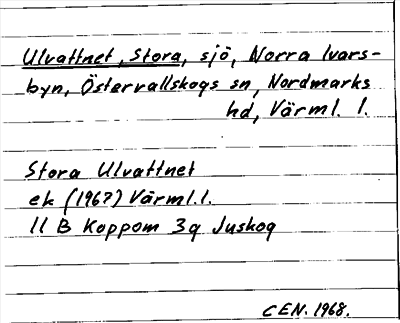 Ulvattnet, Stora, sjö, Norra Ivars-
byn, Östervallskogs sn, Nordmarks
hd, Värml. l.
Stora Ulvattnet
ek (1967) Värml.l.
11 B Koppom 3g Juskog
CEN. 1968.